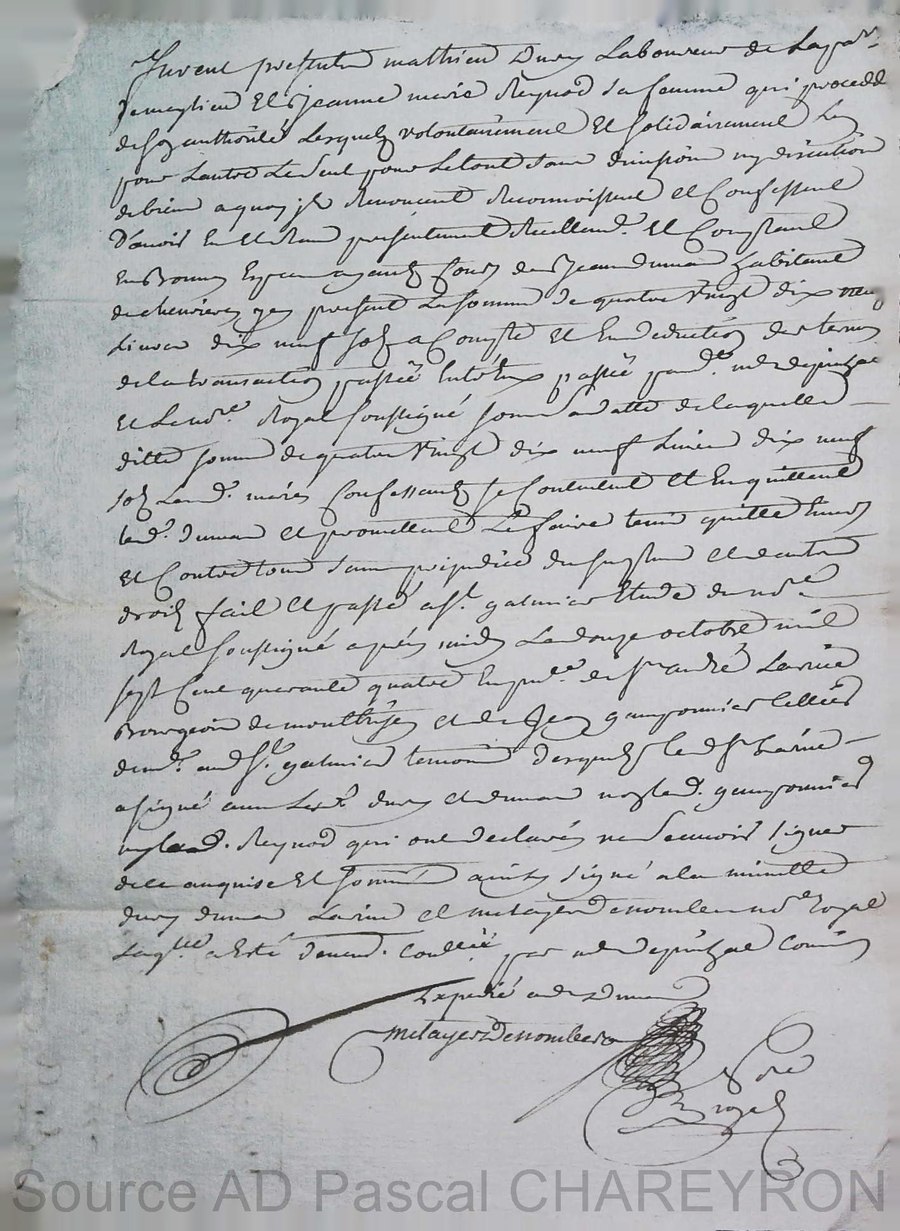 Furent presents mathieu Dury Laboureur de La par.
de meylieu Et Jeanne marie Reynod sa femme qui procede
de son authorité Lesquels volontairement Et solidairement Lun
pour Lautre Le seul pour Le tout sans division ny discution
de biens a quoy ils Renoncent Reconnoissent et Confessent
D'avoir Eu Et Receu présentement Reellem.t Et Comptant
En Bonnes Especes ayants Cours de Jean duman habitant
de chevrieres icy present La somme de quatre Vingt dix neuf
Livres dix neuf sols a Compte Et En deduction des termes
de la transaction passée Entr'Eux passée pard.t me depinhac
Et Le no.re Royal soussigné sous sa datte de laquelle
ditte somme de quatre Vingt dix neuf Livres dix neuf
sols Les d.ts mariés Confessants se Contentent Et En quittent
led.t duman et promettent Le faire tenir quitte Envers
Et Contre tous sans prejudice du surplus et de autres
droits fait Et passé a s.t galmier Etude du no.re
Royal soussigné après midy Le douze octobre mil
sept Cent quarante quatre En p.nce de s.r andré Larine
Bourgeois de montbrison et de Jean gamponnier cellier
dem.t aud S.t galmier temoins desquels le d sr Larine
a signé avec Les d.ts dury et duman non le d. gamponnier
ny lad. Reynod qui ont declarés ne scavoir signer
de ce enquis Et sommés ainsy signé a la minutte
dury duman Larine et metayer Denombre no.re Royal
Laq.lle a Esté duem.t Conllée par me depinhac Commis
Expedié aud Duman
metayer Denombre
No.re
Royal
Source AD Pascal CHAREYRON